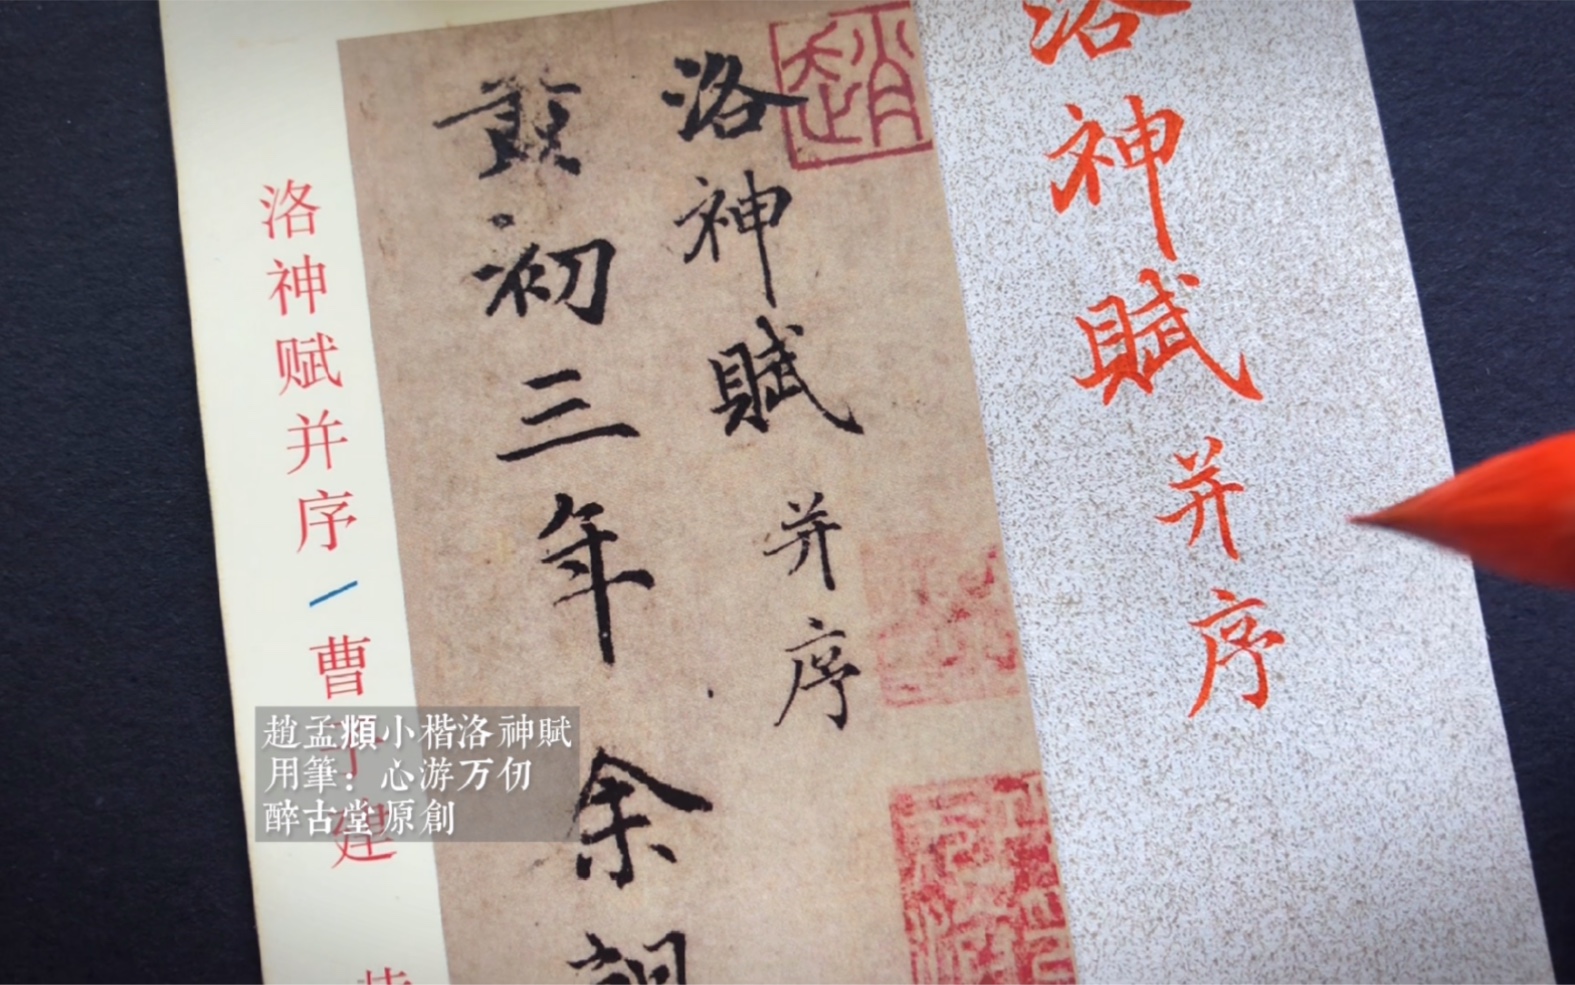 洛神賦并序
洛神賦并序
黃初三年余朝
洛神赋并序 曹子建 黄
趙孟頫小楷洛神賦
用筆：心游万仞
醉古堂原創
趙